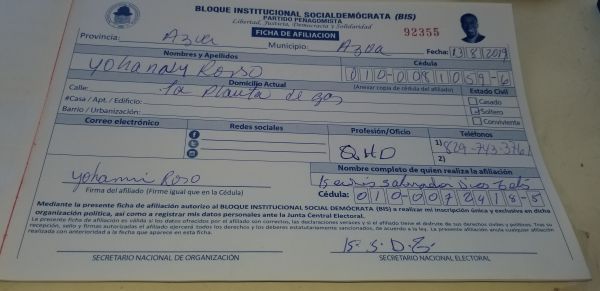 BLOQUE INSTITUCIONAL SOCIALDEMÓCRATA (BIS)
PARTIDO PENAGOMISTA
Libertad, Justicia, Democracia y Solidaridad
FICHA DE AFILIACION
92355
Provincia: Azua Municipio: Azua Fecha: 13/8/2019
Nombres y Apellidos Cédula
Yohandy Rosso 010-0081059-6
Domicilio Actual (Anexar copia de cédula del afiliado) Estado Civil
Calle: La planta de gas Casado
#Casa / Apt. / Edificio: Soltero
Barrio / Urbanización: Conviviente
Correo electrónico Redes sociales Profesión/Oficio Teléfonos
QHD 1) 829-743-3761
2)
Nombre completo de quien realiza la afiliación
Yohanni Roso
Firma del afiliado (Firme igual que en la Cédula) Cédula: 010-0072418-5
Mediante la presente ficha de afiliación autorizo al BLOQUE INSTITUCIONAL SOCIALDEMÓCRATA (BIS) a realizar mi inscripción única y exclusiva en dicha
organización política, así como a registrar mis datos personales ante la Junta Central Electoral.
La presente ficha de afiliación es válida si los datos ofrecidos por el afiliado son correctos, las declaraciones veraces y si el titular está a disfrute de sus derechos civiles y políticos. Tras su
recepción, sello y firmas autorizadas el afiliado ejercerá todos los derechos y los deberes estatutariamente sancionados, de acuerdo a la ley. La presente afiliación anula cualquier afiliación
realizada con anterioridad a la fecha que aparece en esta ficha.
SECRETARIO NACIONAL DE ORGANIZACIÓN SECRETARIO NACIONAL ELECTORAL